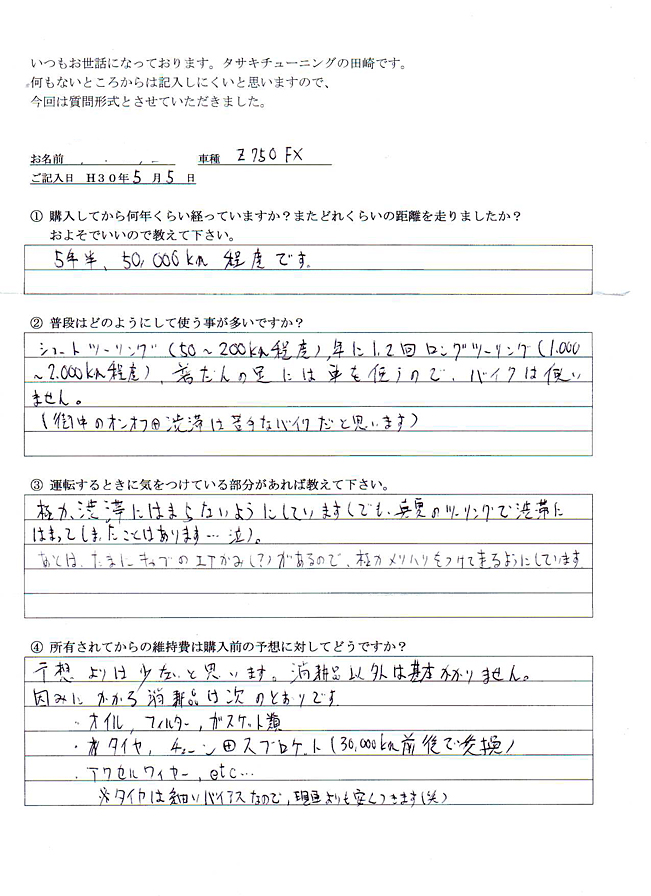 いつもお世話になっております。タサキチューニングの田崎です。
何もないところからは記入しにくいと思いますので、
今回は質問形式とさせていただきました。
お名前 車種 Z750FX
ご記入日 H30年5月5日
① 購入してから何年くらい経っていますか?またどれくらいの距離を走りましたか?
およそでいいので教えて下さい。
5年半、50,000km 程度です。
② 普段はどのようにして使う事が多いですか?
ショートツーリング(50~200km程度)、年に1,2回ロングツーリング(1.000
~2.000km程度)、普だんの足には車を使うので、バイクは使い
ません。
(街中のオンオフ 渋滞は苦手なバイクだと思います)
③ 運転するときに気をつけている部分があれば教えて下さい。
極力、渋滞にはまらないようにしています(でも、真夏のツーリングで渋滞に
はまってしまったことはあります…泣)。
あとは、たまにキャブのエアがみ(?)があるので、極力メリハリをつけて走るようにしています
④ 所有されてからの維持費は購入前の予想に対してどうですか?
予想よりは少ないと思います。消耗品以外は基本かかりません。
因みにかかる消耗品は次のとおりです
・オイル,フィルター,ガスケット類
・タイヤ,チェーン スプロケット(30,000km前後で交換)
・アクセルワイヤー,etc…
※タイヤは細いバイアスなので、よりも安くつきます(笑)